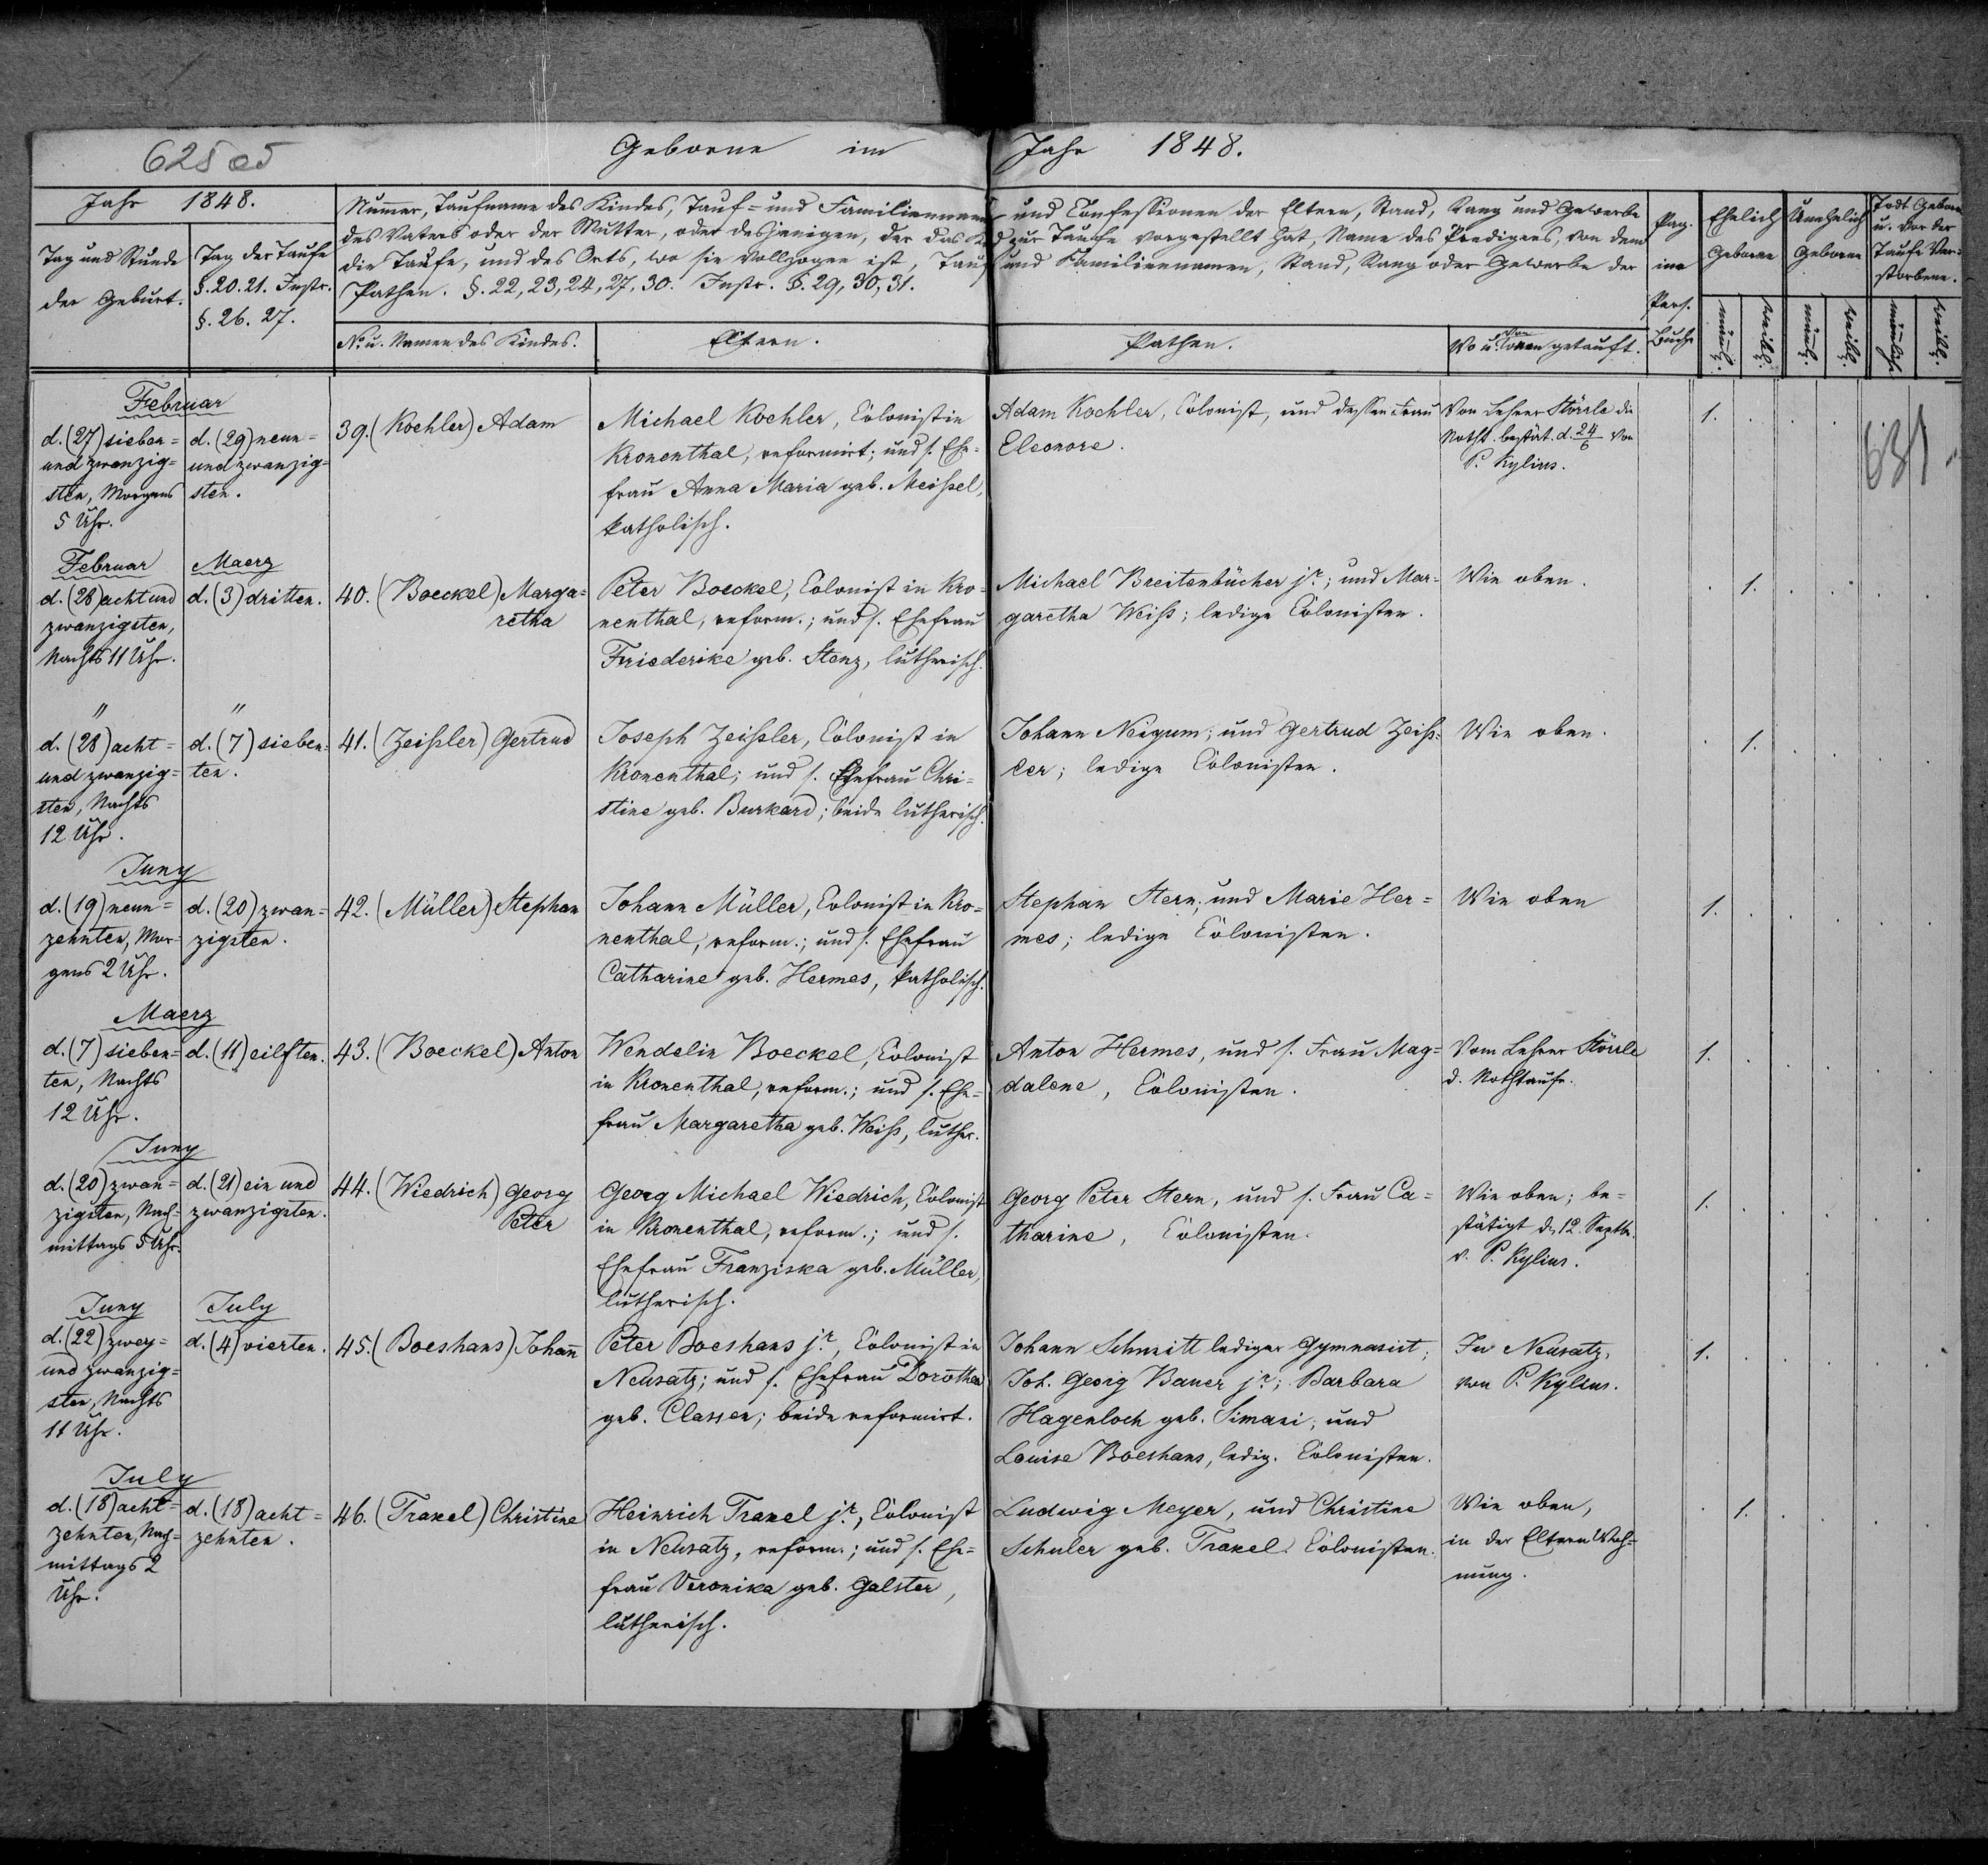 625 об
Geborne im Jahr 1848.
Jahr 1848.
Tag und Stunde
der Geburt.
Tag der Taufe
§. 20. 21. Instr.
§. 26. 27.
Numer, Taufname des Kindes, Tauf= und Familiennamen und Confessionen der Eltern, Stand, Rang und Gewerbe
des Vaters oder der Mutter, oder desjenigen, der das Kind zur Taufe vorgestellt hat, Name des Predigers, von dem
die Taufe, und des Orts, wo sie vollzogen ist, Tauf und Familiennamen, Stand, Rang oder Gewerbe der
Pathen. §. 22, 23, 24, 27, 30. Instr. §. 29, 30, 31.
No. u. Namen des Kindes.
Eltern.
Pathen.
Wo u. von wem getauft.
Pag.
ina
Pers.
Buch
Ehelich
Geborne
Unehelich
Geborne
Todt Geborne
u. vor der
Taufe Ver=
storbene.
männl.
weibl.
männl.
weibl.
männlich
weibl.
Februar
d. (27) sieben=
und zwanzig=
sten, Morgens
5 Uhr.
d. (29) neun=
und zwanzig=
sten.
39. (Koehler) Adam
Michael Koehler, Colonist in
Kronenthal, reformirt; und s. Ehe=
frau Anna Maria geb. Meißel,
katholisch.
Adam Kochler, Colonist, und dessen Frau
Eleonore.
Von Lehrer Störrle die
Notht. bestät. d. 24/6 von
P. Kylius.
1.
631
Februar
d. (28) acht und
zwanzigsten,
Nachts 11 Uhr.
Maerz
d. (3) dritten.
40. (Boeckel) Marga=
retha
Peter Boeckel, Colonist in Kro=
nenthal, reform.; und s. Ehefrau
Friederike geb. Stenz, lutherisch.
Michael Breitenbücher jr.; und Mar=
garetha Weiß; ledige Colonisten.
Wie oben.
1.
"
d. (28) acht=
und zwanzig=
sten, Nachts
12 Uhr.
"
d. (7) sieben=
ten.
41. (Zeißler) Gertrud
Joseph Zeißler, Colonist in
Kronenthal; und s. Ehefrau Chri=
stine geb. Burkard; beide lutherisch.
Johann Neigum; und Gertrud Zeiß=
ler; ledige Colonisten.
Wie oben.
1.
Juny
d. (19) neun=
zehnten, Mor=
gens 2 Uhr.
d. (20) zwan=
zigsten.
42. (Müller) Stephan
Johann Müller, Colonist in Kro=
nenthal, reform.; und s. Ehefrau
Catharine geb. Hermes, katholisch.
Stephan Stern; und Marie Her=
mes; ledige Colonisten.
Wie oben
1.
Maerz
d. (7) sieben=
ten, Nachts
12 Uhr.
d. (11) eilften.
43. (Boeckel) Anton
Wendelin Boeckel, Colonist
in Kronenthal, reform.; und s. Ehe=
frau Margaretha geb. Weiß, luther.
Anton Hermes, und s. Frau Mag=
dalene, Colonisten.
Vom Lehrer Störrle
d. Nothtaufe.
1.
Juny
d. (20) zwan=
zigsten, Nach=
mittags 5 Uhr.
d. (21) ein und
zwanzigsten.
44. (Wiedrich) Georg
Peter
Georg Michael Wiedrich, Colonist
in Kronenthal, reform.; und s.
Ehefrau Franziska geb. Müller,
lutherisch.
Georg Peter Stern, und s. Frau Ca=
tharine, Colonisten.
Wie oben; be=
stätigt d. 12. Septbr.
v. P. Kylius.
1.
Juny
d. (22) zwey=
und zwanzig=
sten, Nachts
11 Uhr.
July
d. (4) vierten.
45. (Boeshans) Johann
Peter Boeshans jr., Colonist in
Neusatz; und s. Ehefrau Dorothea
geb. Classen; beide reformirt.
Johann Schmitt lediger Gymnasist;
Joh. Georg Bauer jr.; Barbara
Hagenloch geb. Simani; und
Louise Boeshans, ledig. Colonisten.
In Neusatz,
von P. Kylius.
1.
July
d. (18) acht=
zehnten, Nach=
mittags 2
Uhr.
d. (18) acht=
zehnten.
46. (Traxel) Christine
Heinrich Traxel jr., Colonist
in Neusatz, reform.; und s. Ehe=
frau Veronika geb. Galster,
lutherisch.
Ludwig Meyer, und Christine
Schuler geb. Traxel. Colonisten.
Wie oben,
in der Eltern Woh=
nung.
1.